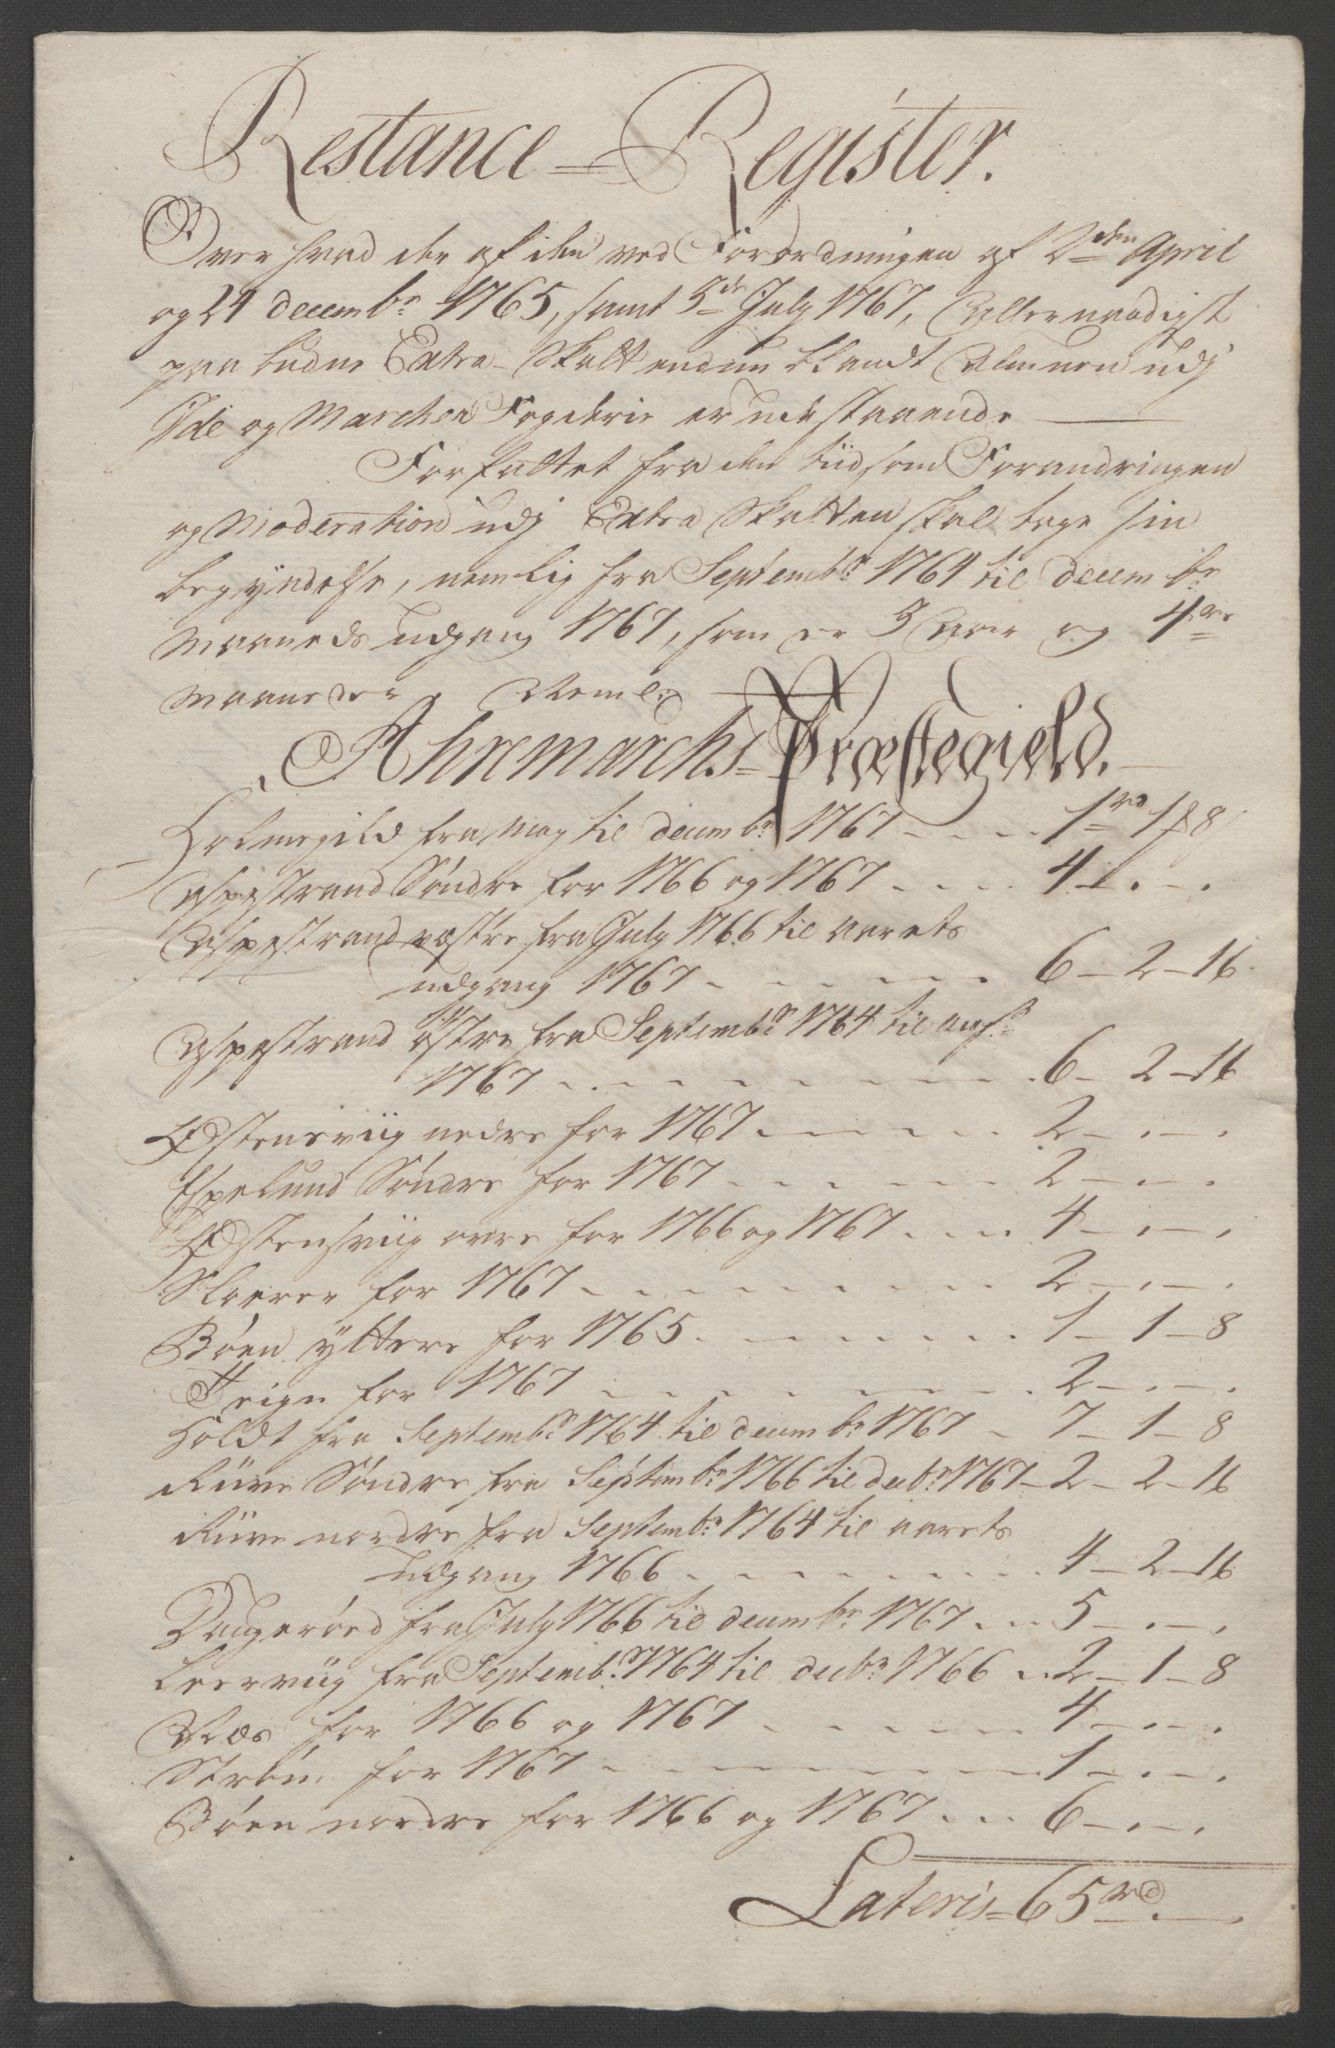 Restance = Register.
Over hvad der af den ved Forordningen af 2den April
og 24 decembr 1765, samt 3de July 1767, Allernaadigst
paabudne Extra-Skatt endnu blandt Almuen udj
Ide og Marchen Fogderie er udestaaende
Forfattet fra den tiid som Forandringen
og Moderation udj Extra Skatten skal tage sin
begyndelse, nemlig fra Septembr 1764 til decembr
Maaneds udgang 1767, som er 3 Aar og 4re
Maaneder, Neml:
Ahremarchs = Præstegield.
Holmegild fra May til decembr 1767 - - - - 1rd 1 8
Aspestrand Søndre for 1766 og 1767 - - - - 4 - . - .
Aspestrand væstre fra July 1766 til aarets
udgang 1767 - - - - - - 6 - 2 - 16
Aspestrand østre fra Septembr 1764 til augs:
1767 - - - - - - - - 6 - 2 - 16
Østensviig nedre for 1767 - - - - - 2 - . - .
Espelund Søndre for 1767 - - - - - 2 - . - .
Østensviig øvre for 1766 og 1767 - - - 4 - . - .
Sloerer for 1767 - - - - - - - - 2 - . - .
Bøen yttere for 1765 - - - - - - 1 - 1 - 8
Teign for 1767 - - - - - - - - 2 - . - .
Holdt fra Septembr 1764 til decembr 1767 - 7 - 1 - 8
Riive Søndre fra Septembr 1766 til decbr 1767 - 2 - 2 - 16
Riive nordre fra Septembr 1764 til aarets
udgang 1766 - - - - - - - 4 - 2 - 16
Daugerøed fra July 1766 til decembr 1767 - - - 5 - . - .
Leerviig fra Septembr 1764 til decbr 1766 - - 2 - 1 - 8
Næs for 1766 og 1767 - - - - - - 4 - . - .
Strøm for 1767 - - - - - - - - 1 - . - .
Bøen nordre for 1766 og 1767 - - - 6 - . - .
Lateris = 65 rd - . -